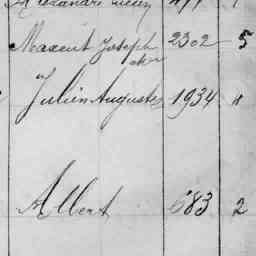 Maxent Joseph 2302 5
Julien Auguste 1934 11
Albert 683 2